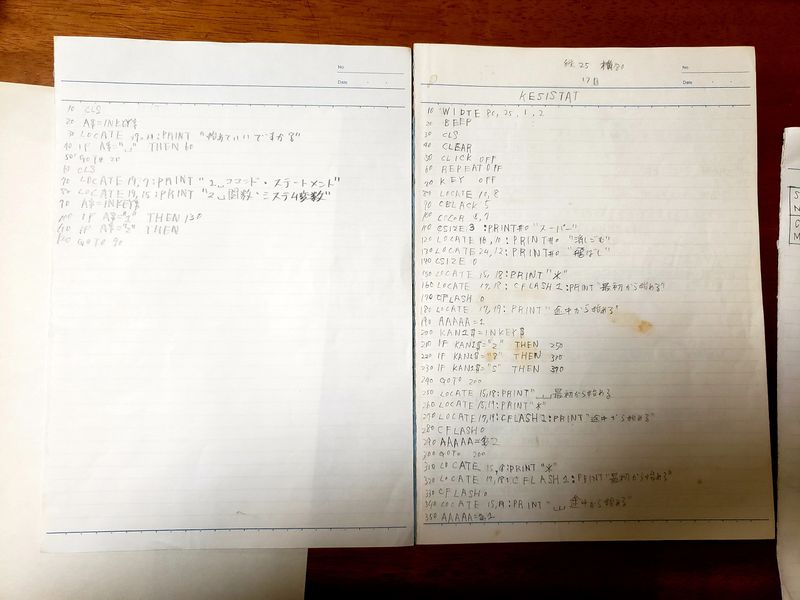 No.
Date
10 CLS
20 A$=INKEY$
30 LOCATE 19,11:PRINT "始めていいですか?"
40 IF A$="␣" THEN 60
50 GOTO 20
60 CLS
70 LOCATE 19,7:PRINT "1␣コマンド・ステートメント"
80 LOCATE 19,15:PRINT "2␣関数・システム変数"
90 A$=INKEY$
100 IF A$="1" THEN 130
110 IF A$="2" THEN
120 GOTO 90
縦25 横80
17日
No.
Date
KESISTAT
10 WIDTE 80,25,1,2
20 BEEP
30 CLS
40 CLEAR
50 CLICK OFF
60 REPEAT OFF
70 KEY OFF
80 LOCATE 10,8
90 CBLACK 5
100 COLOR
110 CSIZE 3 :PRINT#0 "スーパー"
120 LOCATE 16,10:PRINT#0 "消しごむ"
130 LOCATE 24,12:PRINT#0
140 CSIZE 0
150 LOCATE 15,18:PRINT "*"
160 LOCATE 17,18: CFLASH 1:PRINT "最初から始める"
170 CFLASH 0
180 LOCATE 17,19: PRINT "途中から始める"
190 AAAAA=1
200 KAN1$=INKEY$
210 IF KAN1$="2" THEN 250
220 IF KAN1$="8" THEN 310
230 IF KAN1$="5" THEN 390
240 GOTO 200
250 LOCATE 15,18:PRINT "␣最初から始める
260 LOCATE 15,19:PRINT "*"
270 LOCATE 17,19:CFLASH 1:PRINT "途中から始める"
280 CFLASH 0
290 AAAAA=2
300 GOTO 200
310 LOCATE 15,18:PRINT "*"
320 LOCATE 17,18:CFLASH 1:PRINT "最初から始める"
330 CFLASH 0
340 LOCATE 15,19:PRINT "␣ 途中から始める"
350 AAAAA=